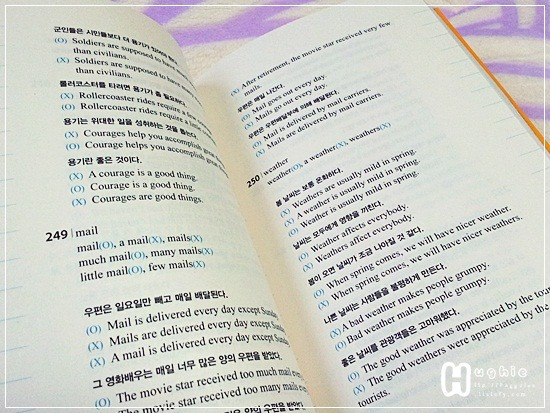 군인들은 시민들보다 더 용기가
(O) Soldiers are supposed to
than civilians.
(X) Soldiers are supposed to have
than civilians.
롤러코스터를 타려면 용기가 좀 필요하다.
(X) Rollercoaster rides require a few
(O) Rollercoaster rides require a little
용기는 위대한 일을 성취하는 것을 돕는다.
(X) Courages help you accomplish great
(O) Courage helps you accomplish great
용기란 좋은 것이다.
(X) A courage is a good thing.
(O) Courage is a good thing.
(X) Courages are good things.
249 | mail
mail(O), a mail(X), mails(X)
much mail(O), many mails(X)
little mail(O), few mails(X)
우편은 일요일만 빼고 매일 배달된다.
(O) Mail is delivered every day except Sunday
(X) Mails are delivered every day except Sunday
(X) A mail is delivered every day except Sunday
그 영화배우는 매일 너무 많은 양의 우편을 받았다.
(O) The movie star received too much mail
(X) The movie star received too many mails
(X) After retirement, the movie star received very few
mails.
우편은 매일 나간다.
(O) Mail goes out every day.
(X) Mails go out every day.
우편은 우편배달부에 의해 배달된다.
(O) Mail is delivered by mail carriers.
(X) Mails are delivered by mail carriers.
250 | weather
weather(O), a weather(X), weathers(X)
봄 날씨는 보통 온화하다.
(X) Weathers are usually mild in spring.
(X) A weather is usually mild in spring.
(O) Weather is usually mild in spring.
날씨는 모두에게 영향을 끼친다.
(O) Weather affects everybody.
(X) Weathers affect everybody.
봄이 오면 날씨가 조금 나아질 것 같다.
(O) When spring comes, we will have nicer weather.
(X) When spring comes, we will have nicer weathers.
나쁜 날씨는 사람들을 불평하게 만든다.
(X) A bad weather makes people grumpy.
(O) Bad weather makes people grumpy.
좋은 날씨를 관광객들은 고마워했다.
(O) The good weather was appreciated by the
(X) The good weathers were appreciated by the
tourists.